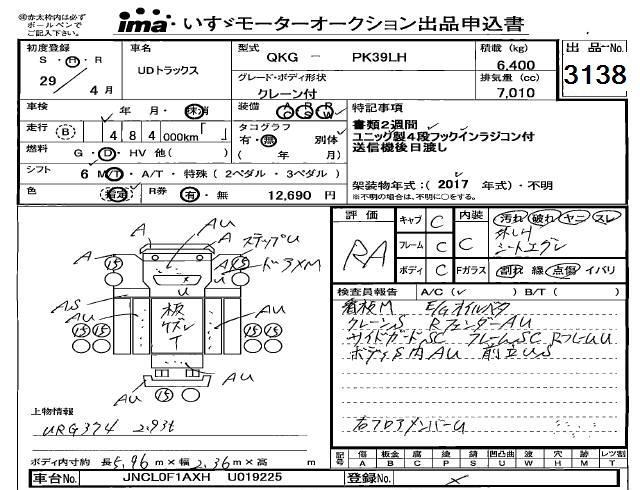 ㊟赤太枠内は必ず
ボールペンで
ご記入下さい。
ima いすゞモーターオークション出品申込書
初度登録
S・H・R
29／4月
車名
UDトラックス
型式
QKG － PK39LH
グレード・ボディ形状
クレーン付
積載 (kg)
6,400
排気量 (cc)
7,010
出品No.
3138
車検 年 月・抹消
装備 AC PS PW
特記事項
書類2週間
ユニック製4段フックインラジコン付
送信機後日渡し
走行 (B) 484 000km「 」
タコグラフ
有・無 別体
( 年 月)
燃料 G・D・HV 他( )
シフト 6 M/T・A/T・特殊（2ペダル・3ペダル）
色 指定 R券 有・無 12,690 円
架装物年式：( 2017 年式)・不明
※不明の場合は、不明に○をする。
A AU
A ステップU
A ⑮ ⑮ ドアXM
U
AS
AU AU
⑮⑮ ⑮⑮
板
AU
AU
⑮
上物情報
URG374 2.93t
ボディ内寸約 長 5.96 m×幅 2.36 m×高 m
評価
RA
キャブ C
フレーム C
ボディ C
内装 C
Fガラス
汚れ 破れ ヤニ スレ
シートエグレ
割れ 線 点傷 イバリ
検査員報告 A/C(✓) B/T( )
看板M E/Gオイルベタ
クレーンS RフェンダーAU
サイドガードSC フレームSC RフレームU
ボディS内AU 前立US
右フロアメンバーU
記号 傷A 板金B 腐C 塗P 錆S 凹凸曲U 波W 穴H 跡M レツ割T
車台No. JNCL0F1AXH U019225
登録No. ×